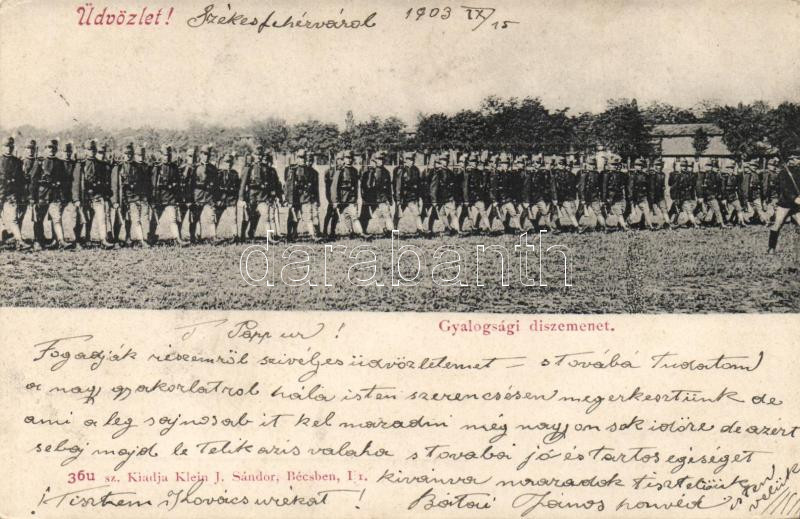 Üdvözlet! Székesfehérvárol 1903 IX/15
darabanth
Gyalogsági diszemenet.
T Papp ur!
Fogadják részemről szivélyes üdvözletemet – tovabá Tudatom
a nagy gyakorlatrol hála isten szerencsésen megerkeztünk de
ami a leg sajnosab it kel maradni még nagyon sok időre de azert
sebaj majd le telik azis valaha tovabá jó és tartos egiséget
36u sz. Kiadja Klein J. Sándor, Bécsben, I/1. kivánva maradok tisztelőjük
Tisztelem Kovács urékat! Bátai János honvéd
Isten velük